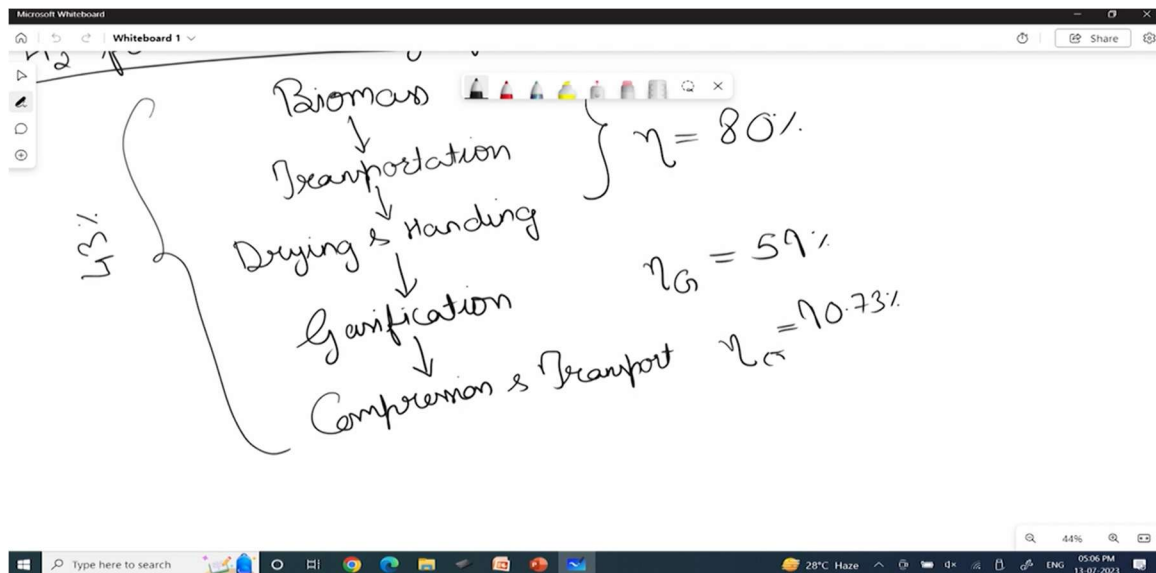 Microsoft Whiteboard
Whiteboard 1
Share
H2
Biomass
Tranportation
Drying & Handing
Gasification
Compression & Transport
} η = 80%
ηG = 59%
ηCT = 90.73%
43%
44%
Type here to search
28°C Haze
ENG
05:06 PM
13-07-2023